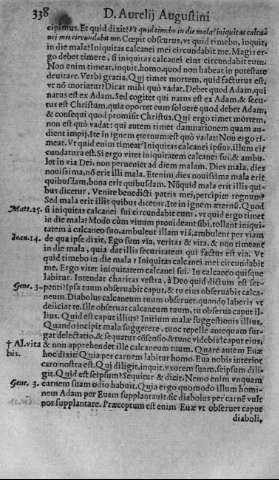 338 D. Aurelij Augustini
cipimus. Et quid dixit? Vt quid timebo in die mala? Iniquitas calcanei
mei circundabit me. Ergo obseruetur, vt quid timebo, inquit,
in die mala? Iniquitas calcanei mei circundabit me. Magis ergo
debet timere, si iniquitas calcanei eius circundabit eum.
Non enim timeat, inquit, homo, quod non habeat in potestate
deuitare. Verbi gratia, Qui timet mortem, quid facturus est
vt nō moriatur? Dicat mihi quò vadat. Debet quod Adam, qui
natus est ex Adam. Sed cogitet qui natus est ex Adam, & secutus
est Christum, quia oportet eum soluere quod debet Adam,
& consequi quod promisit Christus. Qui ergo timet mortem,
non est quò vadat: qui autem timet damnationem quam audient
impij, Ite in ignem æternum est quò vadat: Non ergo timeat.
Vt quid enim timeat? Iniquitas calcanei ipsius. illum circundatura
est. Si ergo vitet iniquitatem calcanei sui, & ambulet
in via Dei, non perueniet ad diem malam. Dies mala, dies
nouissima, nō erit illi mala. Etenim dies nouissima mala erit
quibusdam, bona erit quibusdam. Nūquid mala erit illis quibus
dicetur, Venite benedicti patris mei, percipite regnum?
Sed mala erit illis quibus dicetur, Ite in ignem æternū. Quod
Matt. 25. si iniquitas calcanei sui circundabit eum, vt quid ergo timet
in die mala? Modo cùm viuunt prouideant sibi, tollant iniquitatem
à calcaneo suo, ambulent illam viā, ambulent per viam
Ioan. 14. de qua ipse dixit, Ego sum via, veritas & vita, & non timeant
in die mala, quia dat illis securitatem qui factus est via. Vt
quid timebo in die mala? Iniquitas calcanei mei circundabit
me. Ergo vitet iniquitatem calcanei sui. In calcaneo quisque
labitur. Intendat charitas vestra, à Deo quid dictum est serpenti?
Gene. 3. Ipsa tuum obseruabit caput, & tu eius obseruabis calcaneum.
Diabolus calcaneum tuum obseruat, quando laberis vt
deijciat te. Ille obseruat calcaneum tuum, tu obserua caput illius.
Quid est caput illius? Initium malæ suggestionis illius.
Quando incipit mala suggerere, tunc repelle antequam surgat
delectatio, & sequatur consensio, & tunc videbis caput eius,
† Al. vitabis. & non apprehendet ille calcaneum tuum. Quare autem Euæ
hoc dixit? Quia per carnem labitur homo. Eua nobis interior
caro nostra est. Qui diligit, inquit, vxorem suam, seipsum diligit.
Quid est seipsum? Sequitur & dicit. Nemo enim vnquam
Gene. 3. carnem suam odio habuit. Quia ergo quomodo illum hominem
Adam per Euam supplantauit, sic diabolus per carnē vult
nos supplantare. Præceptum est enim Euæ vt obseruet caput
diaboli,